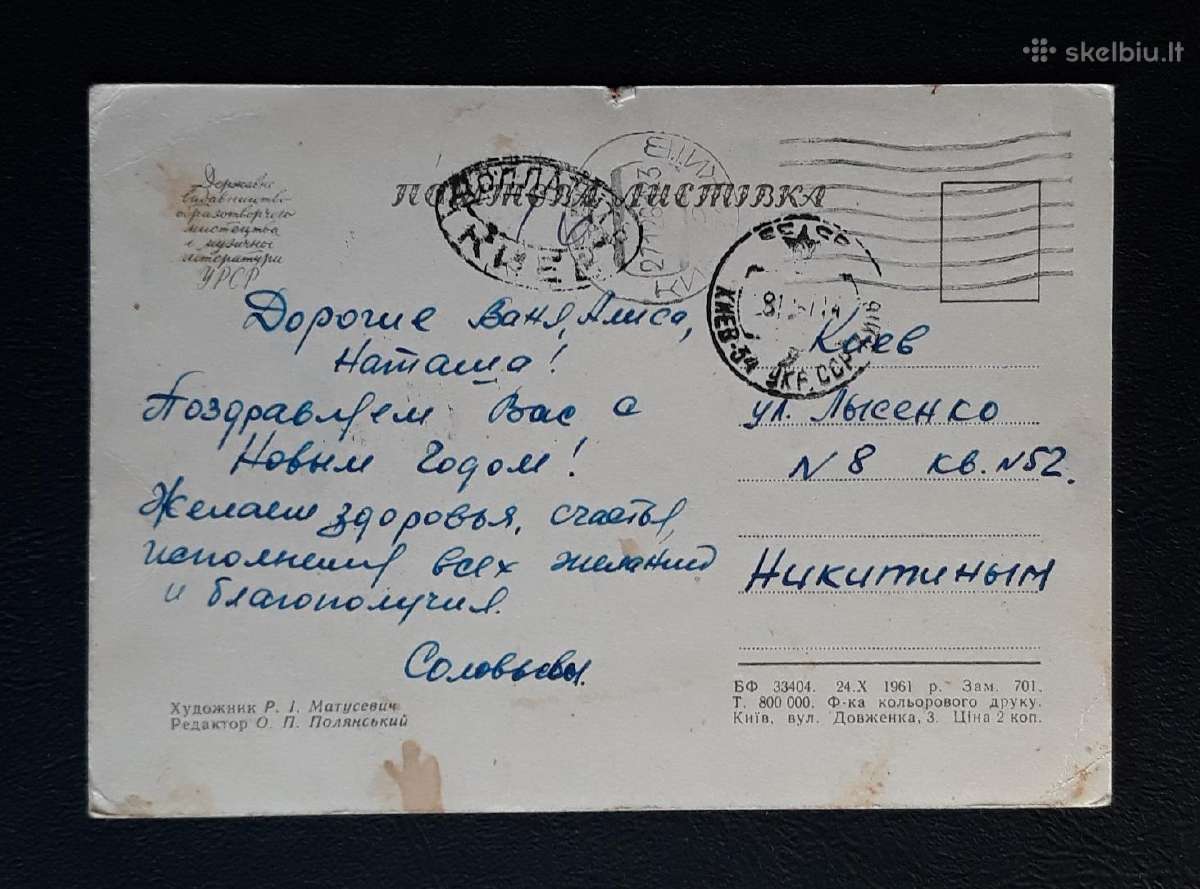 skelbiu.lt
ПОШТОВА ЛИСТІВКА
Державне
видавництво
образотворчого
мистецтва
і музичної
літератури
УРСР
ДОПЛАТИТЬ
КИЇВ
КИЕВ-34 УКР. ССР
Дорогие Ваня, Алиса,
Наташа!
Поздравляем Вас с
Новым Годом!
Желаем здоровья, счастья,
исполнения всех желаний
и благополучия.
Соловьевы.
Киев
ул. Лысенко
N 8 кв. N52.
Никитиным
Художник Р. І. Матусевич
Редактор О. П. Полянський
БФ 33404. 24.X 1961 р. Зам. 701.
Т. 800 000. Ф-ка кольорового друку.
Київ, вул. Довженка, 3. Ціна 2 коп.